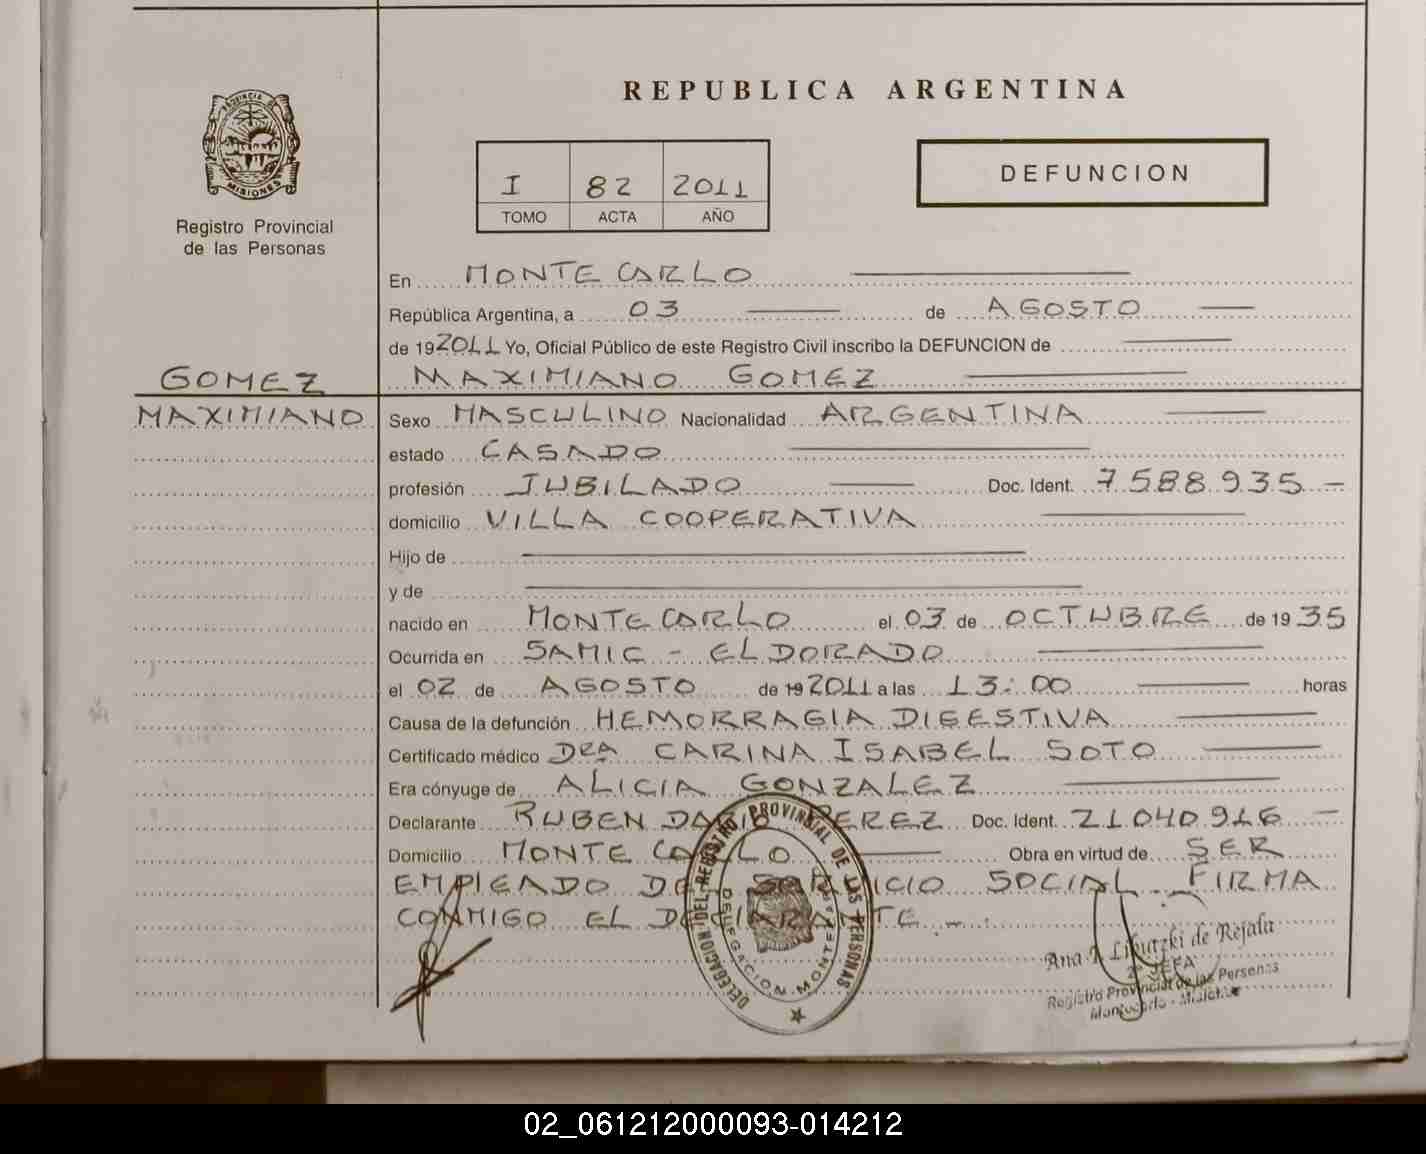 REPUBLICA ARGENTINA
PROVINCIA DE
MISIONES
Registro Provincial
de las Personas
I 82 2011
TOMO ACTA AÑO
DEFUNCION
En MONTE CARLO
República Argentina, a 03 de AGOSTO
de 192011 Yo, Oficial Público de este Registro Civil inscribo la DEFUNCION de
GOMEZ
MAXIMIANO
MAXIMIANO GOMEZ
Sexo MASCULINO Nacionalidad ARGENTINA
estado CASADO
profesión JUBILADO Doc. Ident. 7588935 -
domicilio VILLA COOPERATIVA
Hijo de
y de
nacido en MONTE CARLO el 03 de OCTUBRE de 1935
Ocurrida en SAMIC - ELDORADO
el 02 de AGOSTO de 19 2011 a las 13:00 horas
Causa de la defunción HEMORRAGIA DIGESTIVA
Certificado médico DRA CARINA ISABEL SOTO
Era cónyuge de ALICIA GONZALEZ
Declarante RUBEN DARIO PEREZ Doc. Ident. 21040916 -
Domicilio MONTE CARLO Obra en virtud de SER
EMPLEADO DEL SERVICIO SOCIAL - FIRMA
CONMIGO EL DECLARANTE - .
DELEGACION DEL REGISTRO PROVINCIAL DE LAS PERSONAS
Ana de Rejala
2ª JEFA
Registro Provincial de las Personas
Montecarlo - Misiones
02_061212000093-014212